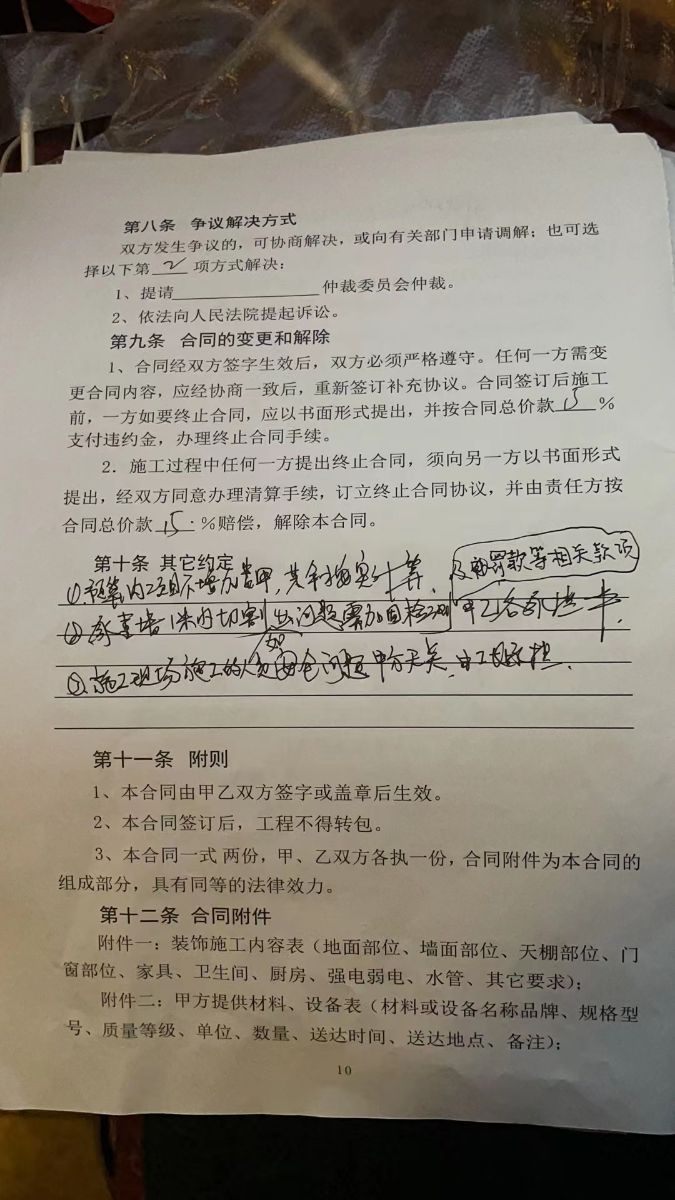 第八条 争议解决方式
双方发生争议的，可协商解决，或向有关部门申请调解；也可选
择以下第 2 项方式解决：
1、提请 仲裁委员会仲裁。
2、依法向人民法院提起诉讼。
第九条 合同的变更和解除
1、合同经双方签字生效后，双方必须严格遵守。任何一方需变
更合同内容，应经协商一致后，重新签订补充协议。合同签订后施工
前，一方如要终止合同，应以书面形式提出，并按合同总价款 15 %
支付违约金，办理终止合同手续。
2．施工过程中任何一方提出终止合同，须向另一方以书面形式
提出，经双方同意办理清算手续，订立终止合同协议，并由责任方按
合同总价款 15 %赔偿，解除本合同。
第十条 其它约定
及 罚款等相关款项
① 预算内项目不增加费用，其余按实计算．
② 承重墙 内切割出问题需加固检测 甲乙各承担一半．
③．施工现场施工的人员 安全问题甲方无关，由乙 承担．
第十一条 附则
1、本合同由甲乙双方签字或盖章后生效。
2、本合同签订后，工程不得转包。
3、本合同一式 两份，甲、乙双方各执一份，合同附件为本合同的
组成部分，具有同等的法律效力。
第十二条 合同附件
附件一：装饰施工内容表（地面部位、墙面部位、天棚部位、门
窗部位、家具、卫生间、厨房、强电弱电、水管、其它要求）；
附件二：甲方提供材料、设备表（材料或设备名称品牌、规格型
号、质量等级、单位、数量、送达时间、送达地点、备注）；
10